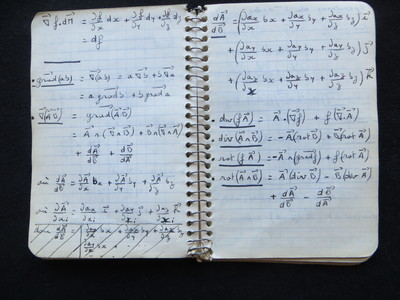 ∇⃗f.dM⃗ = ∂f/∂x dx + ∂f/∂y dy + ∂f/∂z dz
= df
grad(ab) = ∇⃗(ab) = a∇⃗b + b∇⃗a
= a grad b + b grad a
∇⃗(A⃗B⃗) = grad(A⃗B⃗)
= A⃗∧(∇⃗∧B⃗) + B⃗∧(∇⃗∧A⃗)
+ dA⃗/dB⃗ + dB⃗/dA⃗
dA⃗/dB⃗ = ∂A⃗/∂x bx + ∂A⃗/∂y by + ∂A⃗/∂z bz
∂A⃗/∂xi = ∂ax/∂xi i⃗ + ∂ay/∂xi j⃗ + ∂az/∂xi k⃗
dA⃗/dB⃗ = (∂ax/∂x bx + ∂ax/∂y by + ∂ax/∂z bz) i⃗
+ (∂ay/∂x bx + ∂ay/∂y by + ∂ay/∂z bz) j⃗
+ (∂az/∂x bx + ∂az/∂y by + ∂az/∂z bz) k⃗
div(f A⃗) = A⃗.(∇⃗f) + f(∇⃗A⃗)
div(A⃗∧B⃗) = -A⃗(rot B⃗) + B⃗(rot A⃗)
rot(f A⃗) = -A⃗∧(grad f) + f(rot A⃗)
rot(A⃗∧B⃗) = A⃗(div B⃗) - B⃗(div A⃗)
+ dA⃗/dB⃗ - dB⃗/dA⃗